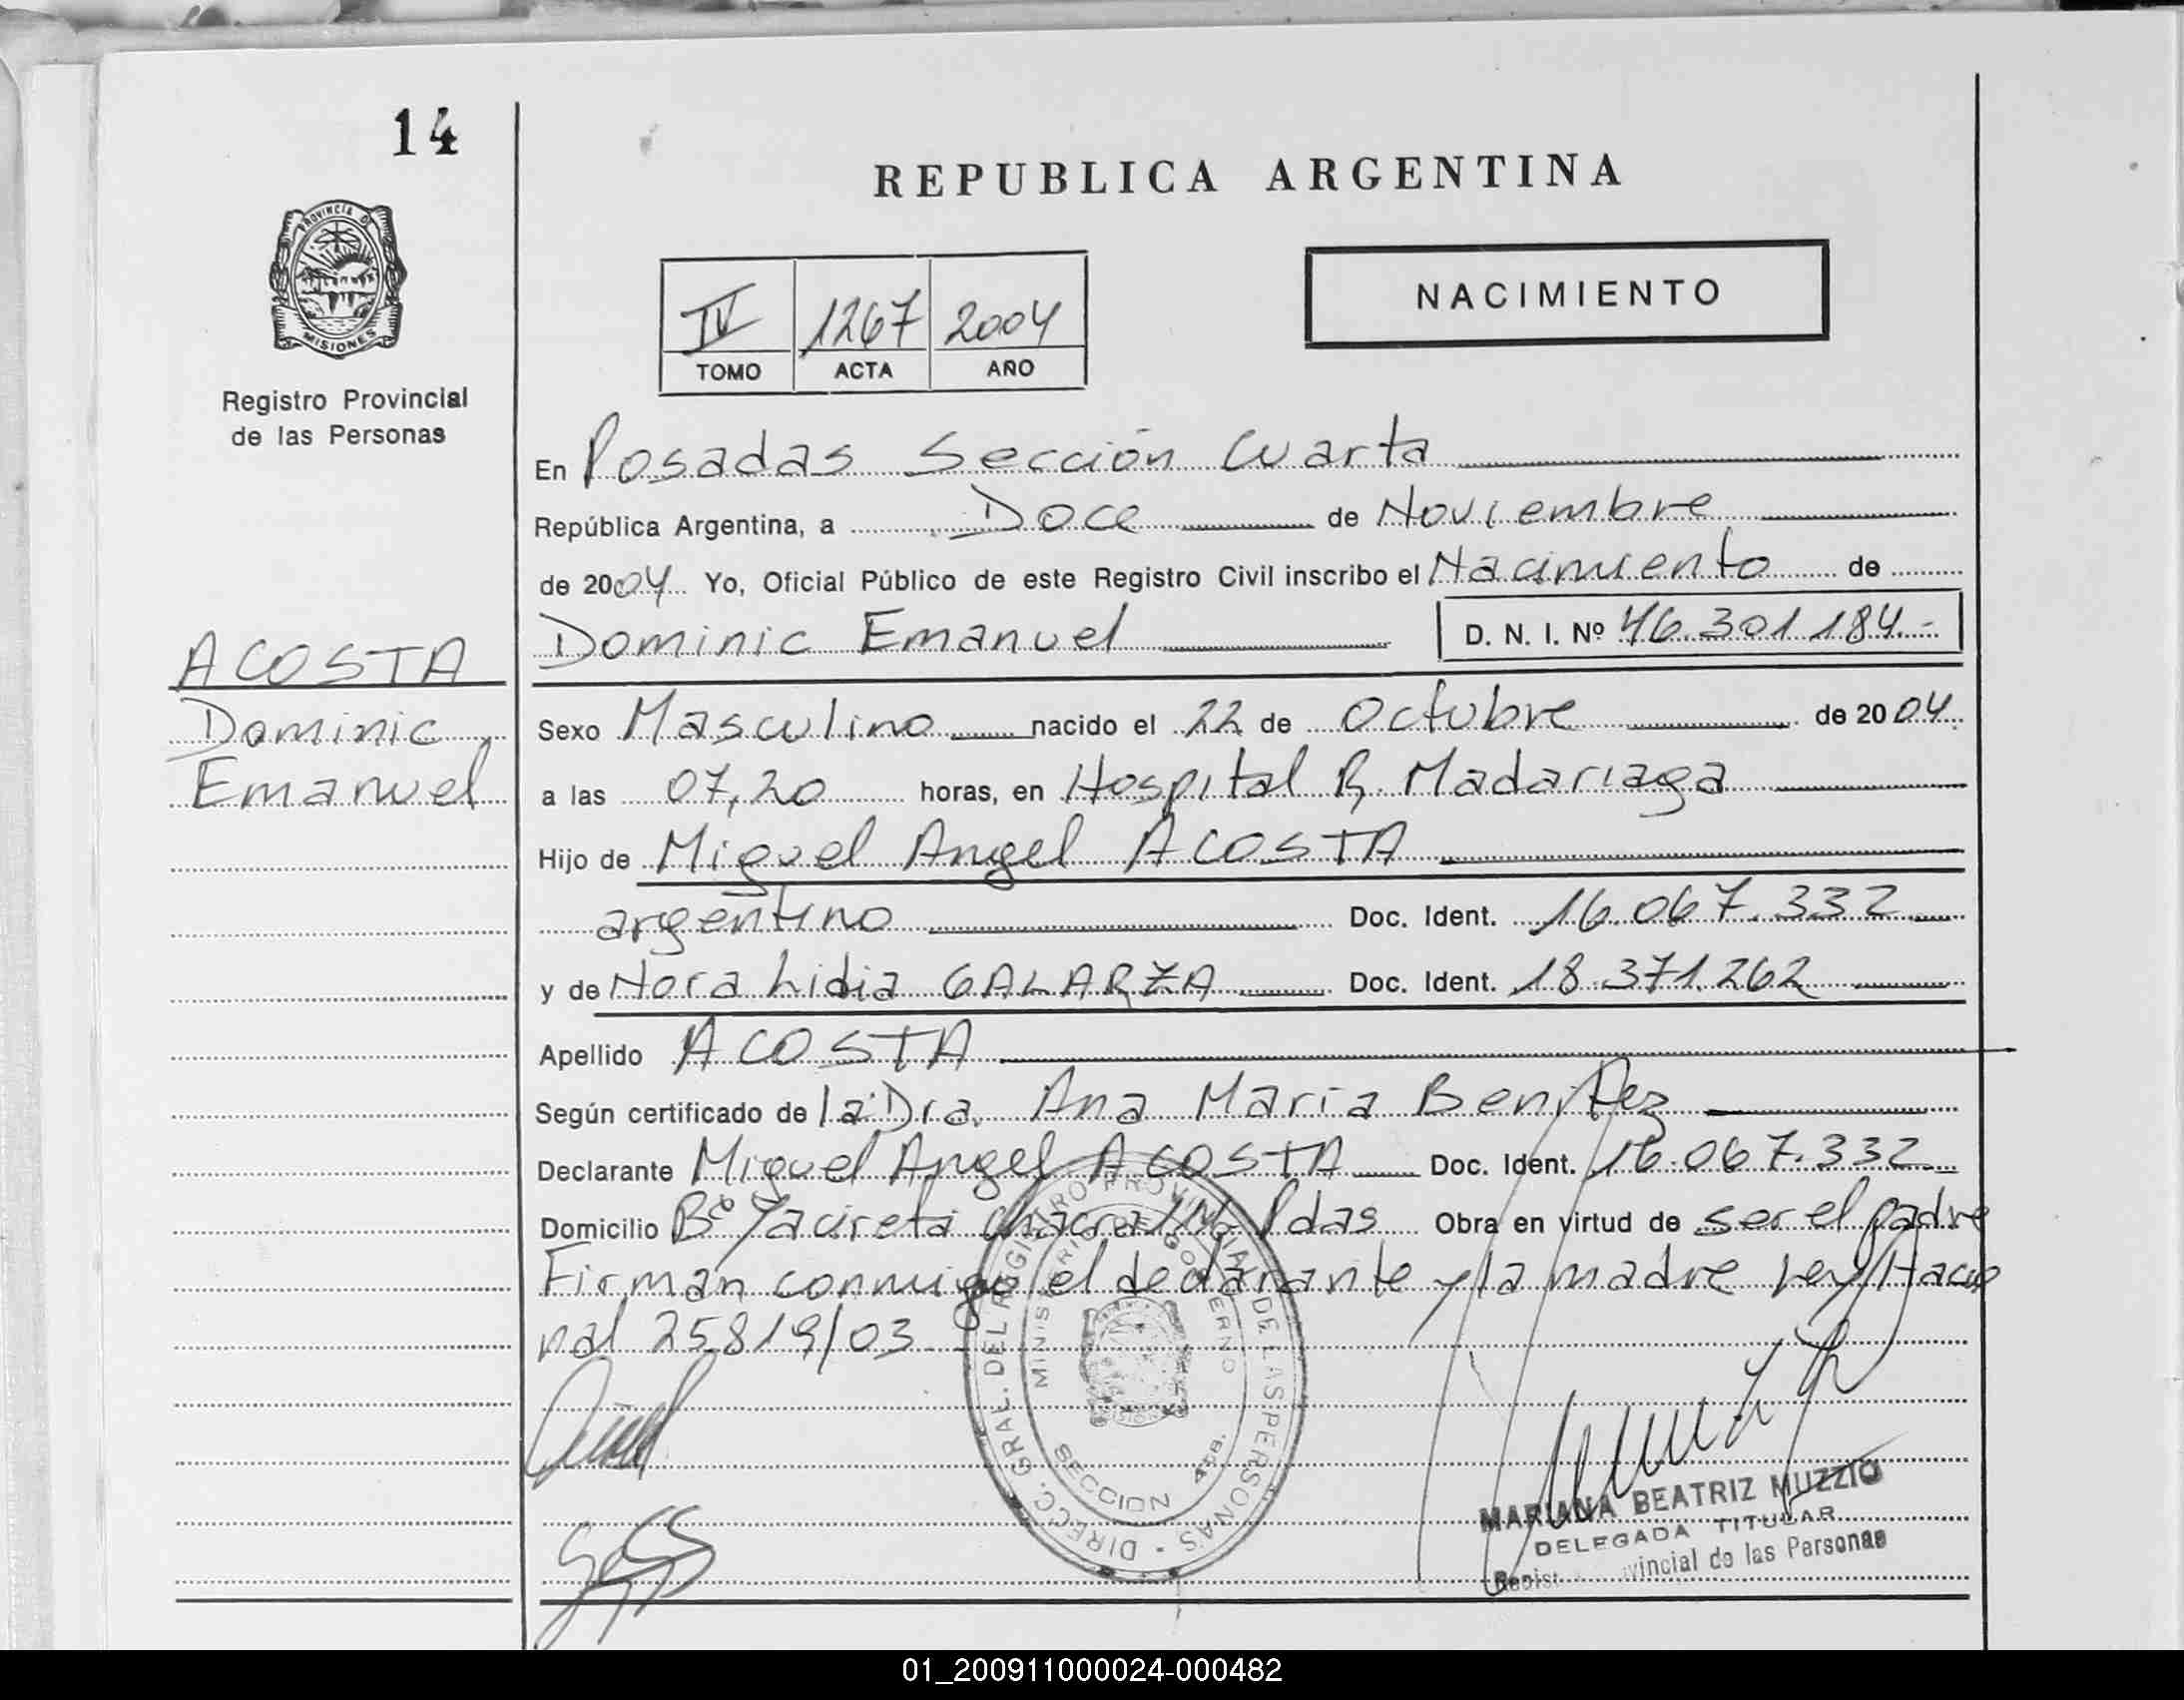 14
REPUBLICA ARGENTINA
PROVINCIA D
MISIONES
Registro Provincial
de las Personas
NACIMIENTO
IV 1267 2004
TOMO ACTA AÑO
En Posadas Sección Cuarta
República Argentina, a Doce de Noviembre
de 2004 Yo, Oficial Público de este Registro Civil inscribo el Nacimiento de
Dominic Emanuel D. N. I. Nº 46.301.184.-
ACOSTA
Dominic
Emanuel
Sexo Masculino nacido el 22 de Octubre de 2004
a las 07,20 horas, en Hospital R. Madariaga
Hijo de Miguel Angel ACOSTA
argentino Doc. Ident. 16.067.332
y de Nora Lidia GALARZA Doc. Ident. 18.371.262
Apellido ACOSTA
Según certificado de la Dra. Ana Maria Benitez
Declarante Miguel Angel ACOSTA Doc. Ident. 16.067.332
Domicilio Bº Yacireta Chacra Pdas Obra en virtud de ser el padre
Firman conmigo el declarante y la madre Ley Nacio
nal 25819/03
DIRECC. GRAL. DEL REGISTRO PROVINCIAL DE LAS PERSONAS
MINISTERIO DE GOBIERNO
SECCION 4ta.
MARIANA BEATRIZ MUZZIO
DELEGADA TITULAR
Regist vincial de las Personas
01_200911000024-000482